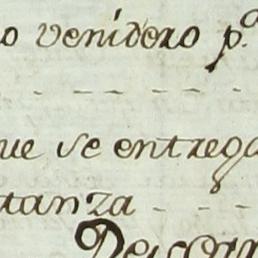 o venidero p.ª
ue se entrega
tanza